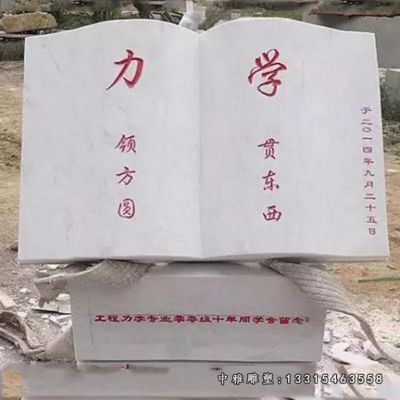 力学
领方圆
贯东西
于二〇一四年九月二十五日
工程力学专业零零级十年同学会留念
中雅雕塑:13315463558